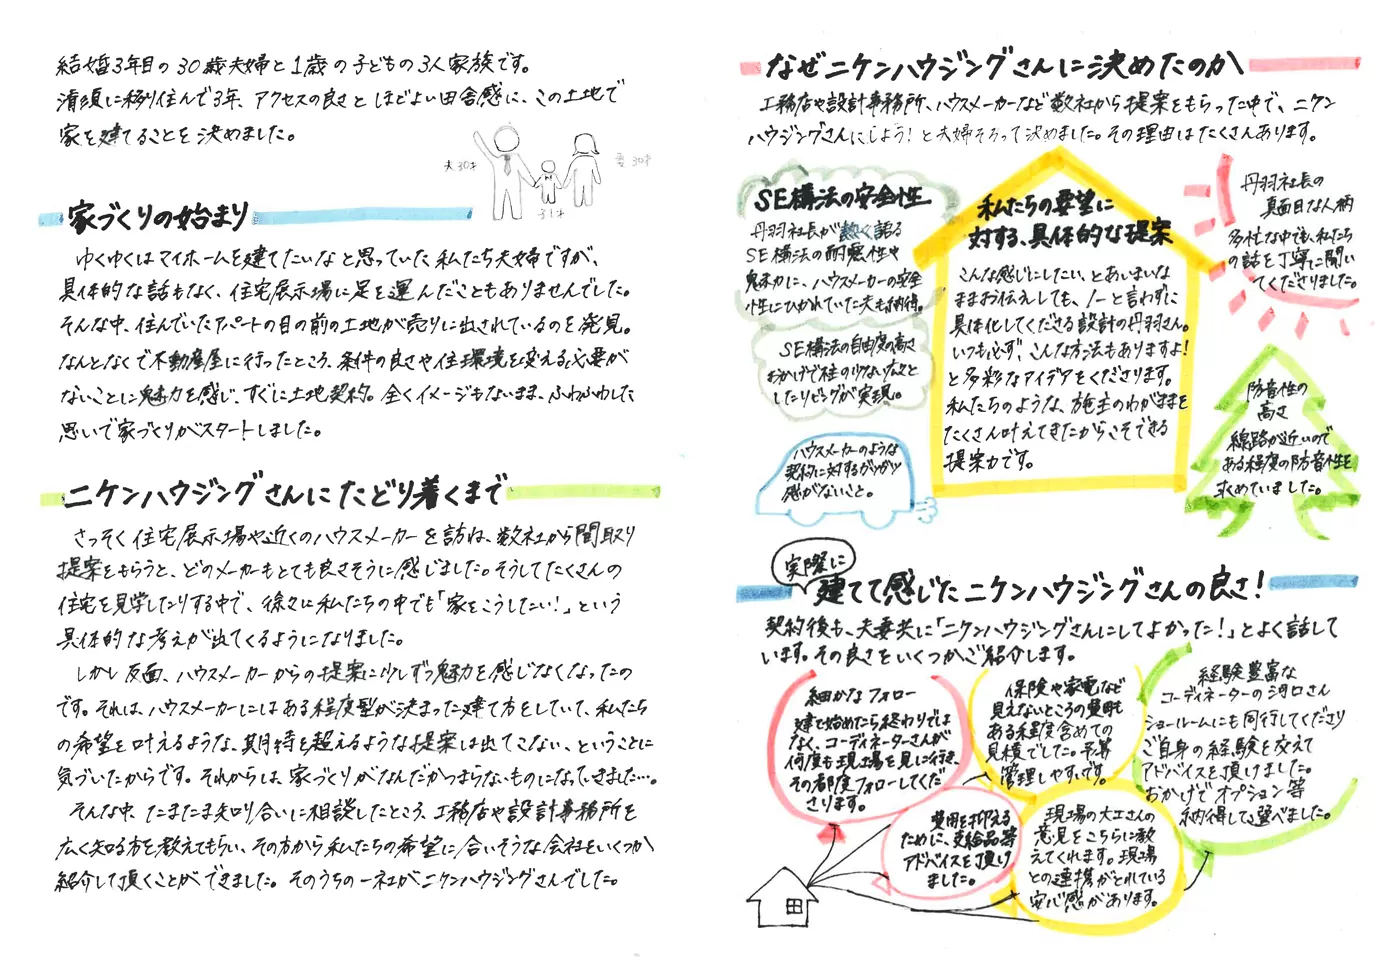 結婚3年目の30歳夫婦と1歳の子どもの3人家族です。
清須に移り住んで3年、アクセスの良さとほどよい田舎感に、この土地で
家を建てることを決めました。
夫30才
妻30才
子1才
家づくりの始まり
ゆくゆくはマイホームを建てたいなと思っていた私たち夫婦ですが、
具体的な話もなく、住宅展示場に足を運んだこともありませんでした。
そんな中、住んでいたアパートの目の前の土地が売りに出されているのを発見。
なんとなくで不動産屋に行ったところ、条件の良さや住環境を変える必要が
ないことに魅力を感じ、すぐに土地契約。全くイメージもないまま、ふわふわした
思いで家づくりがスタートしました。
ニケンハウジングさんにたどり着くまで
さっそく住宅展示場や近くのハウスメーカーを訪ね、数社から間取り
提案をもらうと、どのメーカーもとても良さそうに感じました。そうしてたくさんの
住宅を見学したりする中で、徐々に私たちの中でも「家をこうしたい!」という
具体的な考えが出てくるようになりました。
しかし反面、ハウスメーカーからの提案に少しずつ魅力を感じなくなったの
です。それは、ハウスメーカーにはある程度型が決まった建て方をしていて、私たち
の希望を叶えるような、期待を超えるような提案は出てこない、ということに
気づいたからです。それからは、家づくりがなんだかつまらないものになってきました…。
そんな中、たまたま知り合いに相談したところ、工務店や設計事務所を
広く知る方を教えてもらい、その方から私たちの希望に合いそうな会社をいくつか
紹介して頂くことができました。そのうちの一社がニケンハウジングさんでした。
なぜニケンハウジングさんに決めたのか
工務店や設計事務所、ハウスメーカーなど数社から提案をもらった中で、ニケン
ハウジングさんにしよう!と夫婦そろって決めました。その理由はたくさんあります。
SE構法の安全性
丹羽社長が熱く語る
SE構法の耐震性や
魅力に、ハウスメーカーの安全
性にひかれていた夫も納得。
SE構法の自由度の高さ
おかげで柱の少ない広々と
したリビングが実現。
ハウスメーカーのような
契約に対するガツガツ
感がないこと。
私たちの要望に
対する、具体的な提案
こんな感じにしたい、とあいまいな
ままお伝えしても、ノーと言わずに
具体化してくださる設計の丹羽さん。
いつも必ず、こんな方法もありますよ!
と多彩なアイデアをくださります。
私たちのような、施主のわがままを
たくさん叶えてきたからこそできる
提案力です。
丹羽社長の
真面目な人柄
多忙な中でも、私たち
の話を丁寧に聞い
てくださりました。
防音性の
高さ
線路が近いので
ある程度の防音性を
求めていました。
実際に
建てて感じたニケンハウジングさんの良さ!
契約後も、夫妻共に「ニケンハウジングさんにしてよかった!」とよく話して
います。その良さをいくつかご紹介します。
細かなフォロー
建て始めたら終わりでは
なく、コーディネーターさんが
何度も現場を見に行き、
その都度フォローしてくだ
さります。
保険や家電など
見えないところの費用も
ある程度含めての
見積でした。予算
管理しやすいです。
経験豊富な
コーディネーターの河口さん
ショールームにも同行してくださり
ご自身の経験を交えて
アドバイスを頂けました。
おかげでオプション等
納得して選べました。
費用を抑える
ために、支給品等
アドバイスを頂け
ました。
現場の大工さんの
意見をこちらに教
えてくれます。現場
との連携がとれている
安心感があります。